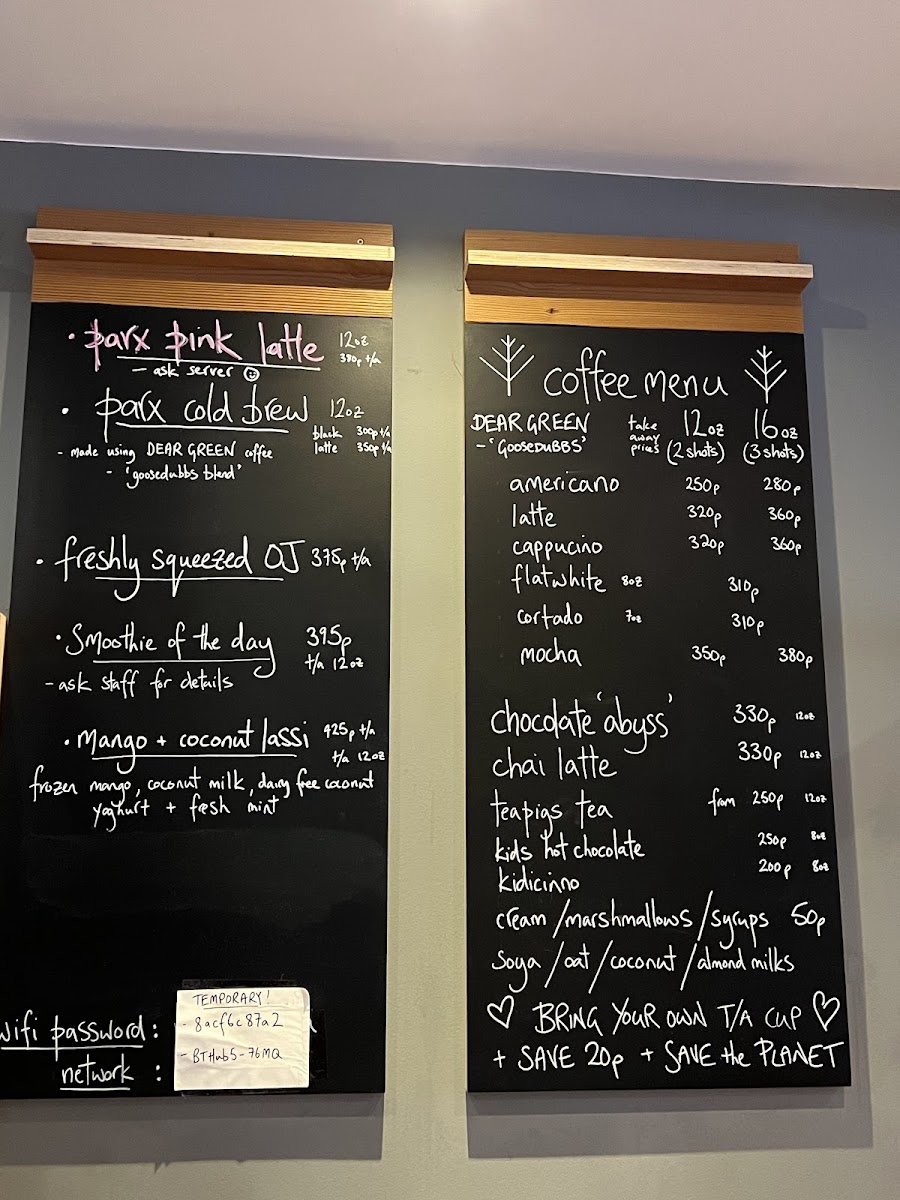 • parx pink latte 12oz
380p t/a
– ask server ☺
• parx cold brew 12oz
black 300p t/a
- made using DEAR GREEN coffee latte 350p t/a
- 'goosedubbs blend'
• freshly squeezed OJ 375p t/a
• Smoothie of the day 395p
t/a 12oz
- ask staff for details
• Mango + coconut lassi 425p t/a
t/a 12oz
frozen mango, coconut milk, dairy free coconut
yoghurt + fresh mint
wifi password:
network :
TEMPORARY!
- 8acf6c87a2
- BTHub5-76MQ
coffee menu
DEAR GREEN
- 'GOOSEDUBBS'
take away prices 12oz 16oz
(2 shots) (3 shots)
americano 250p 280p
latte 320p 360p
cappucino 320p 360p
flatwhite 8oz 310p
cortado 7oz 310p
mocha 350p 380p
chocolate 'abyss' 330p 12oz
chai latte 330p 12oz
teapigs tea from 250p 12oz
kids hot chocolate 250p 8oz
kidicinno 200p 8oz
cream/marshmallows/syrups 50p
Soya/oat/coconut/almond milks
♡ BRING YOUR OWN T/A CUP ♡
+ SAVE 20p + SAVE the PLANET